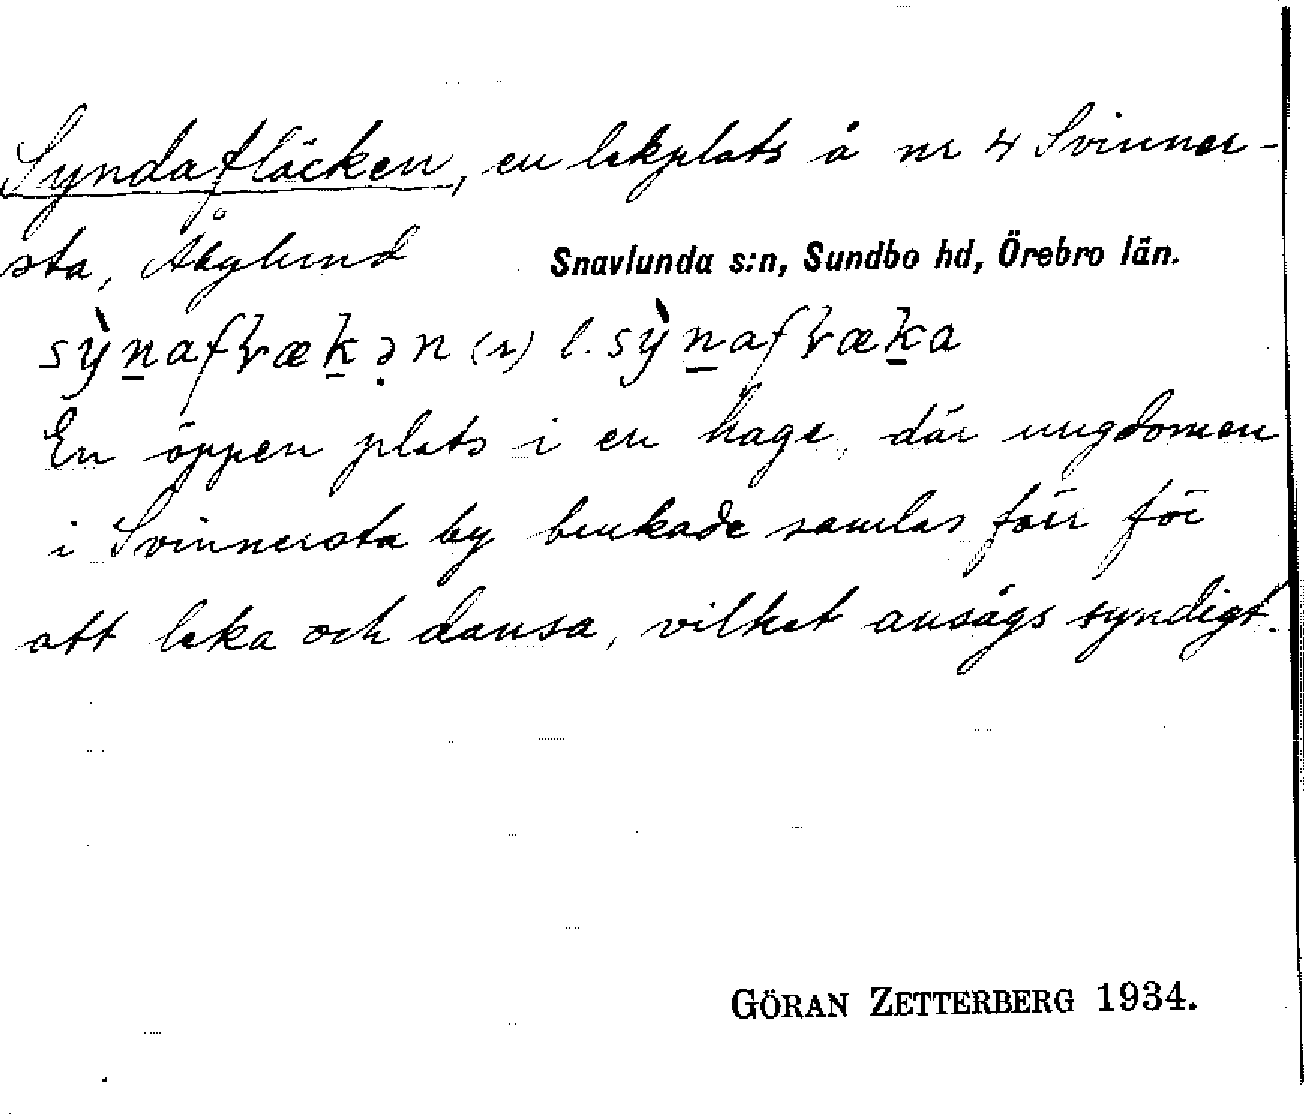 Syndafläcken, en lekplats å nr 4 Svinner-
sta, Åbylund Snavlunda s:n, Sundbo hd, Örebro län.
(r) l.
En öppen plats i en hage, där ungdomen
i Svinnersta by brukade samlas förr för
att leka och dansa, vilket ansågs syndigt.
GÖRAN ZETTERBERG 1934.